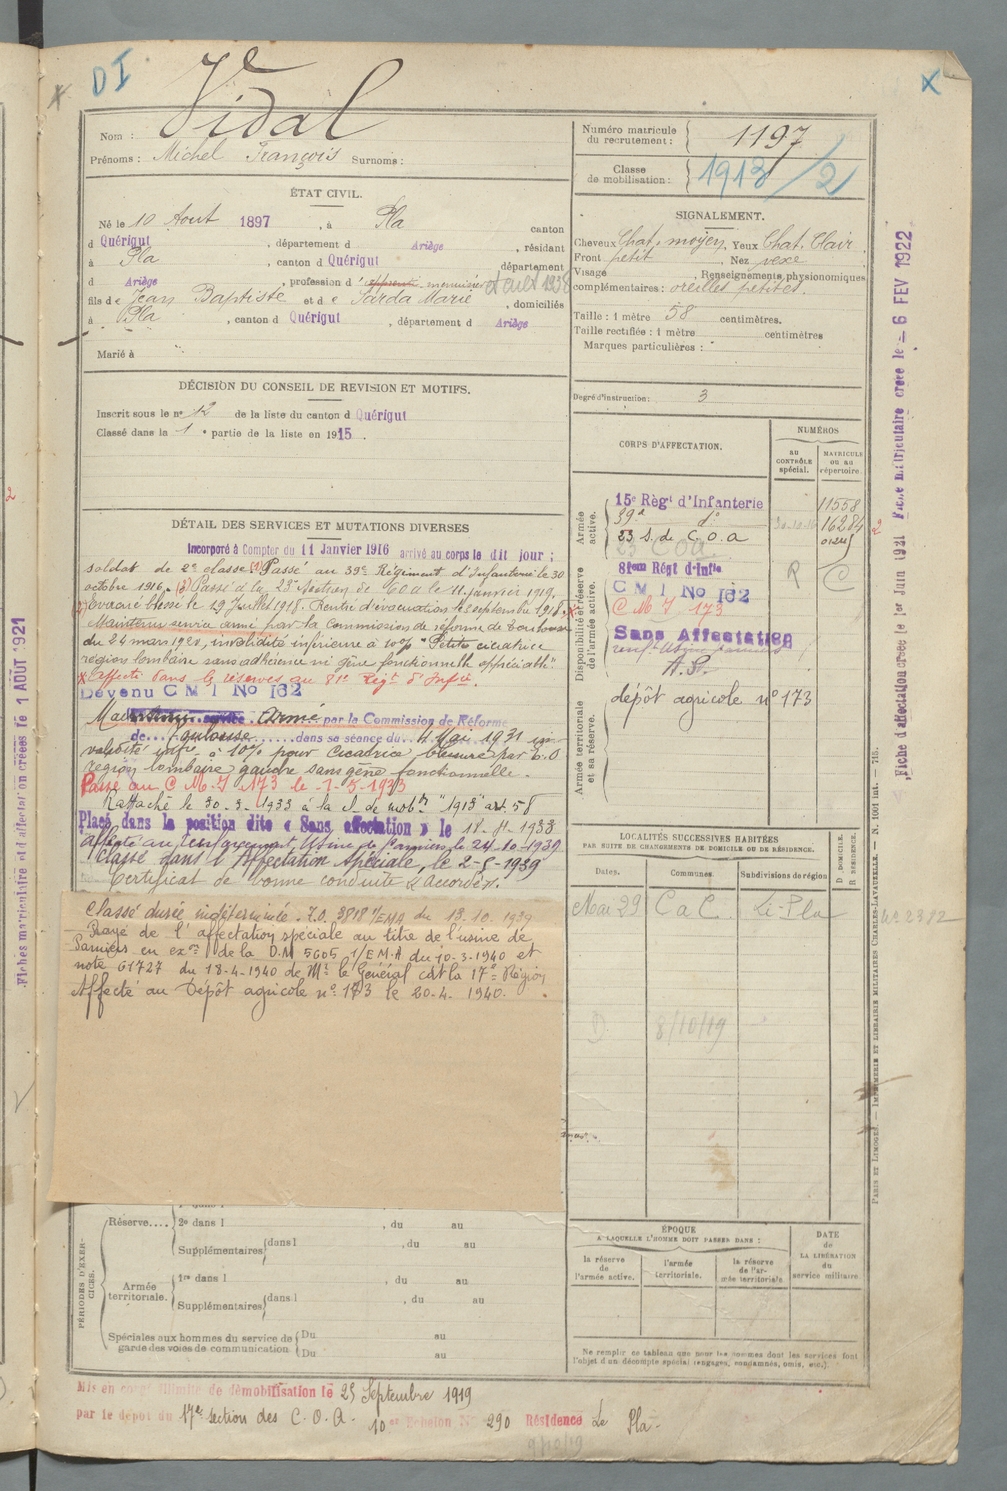 DI
X
Vidal
Nom :
Prénoms : Michel François Surnoms :
Numéro matricule du recrutement : 1197
Classe de mobilisation : 1913/2
ÉTAT CIVIL.
Né le 10 Aout 1897, à Pla canton
d Quérigut, département d Ariège, résidant
à Pla, canton d Quérigut, département
d Ariège, profession d'
fils de Jean Baptiste et de Sarda Marie, domiciliés
à Pla, canton d Quérigut, département d Ariège
Marié à
SIGNALEMENT.
Cheveux Chat. moyen, Yeux Chat. Clair
Front petit, Nez vexe
Visage , Renseignements physionomiques
complémentaires : oreilles petites.
Taille : 1 mètre 58 centimètres.
Taille rectifiée : 1 mètre centimètres
Marques particulières :
Degré d'instruction : 3
DÉCISION DU CONSEIL DE REVISION ET MOTIFS.
Inscrit sous le n° 12 de la liste du canton d Quérigut
Classé dans la 1e partie de la liste en 1915.
DÉTAIL DES SERVICES ET MUTATIONS DIVERSES
Incorporé à Compter du 11 Janvier 1916 arrivé au corps le dit jour ;
soldat de 2e classe (1) Passé au 39e Régiment d'Infanterie le 30
octobre 1916. (3) Passé à la 23e Section de C.O.A le 11 janvier 1919.
(2) Evacué blessé le 19 Juillet 1918. Rentré d'évacuation le septembre 1918.
Maintenu service armé par la Commission de réforme de Toulouse
du 24 mars 1920, invalidité inférieure à 10% "Petite cicatrice
région lombaire sans adhérence ni gêne fonctionnelle appréciable".
x Affecté dans la réserve au 81e Regt d'Infie.
Devenu C M I No 162
Armé par la Commission de Réforme
de Toulouse dans sa séance du 4 Mai 1931
validité infre à 10% pour Cicatrice blessure par E.O
région lombaire gauche sans gêne fonctionnelle.
Passé au C M I 173 le 1-5-1933
Rattaché le 30-3-1933 à la Cl. de mobon "1913" art 58
Placé dans la position dite « Sans affectation » le 18-1933
Usine de Pamiers, le 24-10-1939
Classé dans l'Affectation Spéciale, le 2-9-1939
Certificat de bonne conduite "Accordé".
Classé durée indéterminée. I.O. 3818 1/EMA du 13.10.1939
Rayé de l'affectation spéciale au titre de l'usine de
Pamiers en exon de la D.M 5605 1/E.M.A du 10-3-1940 et
note 61727 du 18-4-1940 de Mr le Général Cdt la 17e Région
Affecté au Dépôt agricole n° 173 le 20-4-1940.
CORPS D'AFFECTATION.
NUMÉROS
au CONTRÔLE spécial.
MATRICULE ou au répertoire.
Armée active.
15e Règt d'Infanterie 11558
39e do 16284
23 S. de C.O.A
23 COA
Disponibilité et réserve de l'armée active.
81eme Régt d'Infie R C
C M I No 162
C M I 173
Sans Affectation
A.S.
Armée territoriale et sa réserve.
dépôt agricole n° 173
LOCALITÉS SUCCESSIVES HABITÉES
PAR SUITE DE CHANGEMENTS DE DOMICILE OU DE RÉSIDENCE.
Dates. Communes. Subdivisions de région. D. DOMICILE. R. RÉSIDENCE.
Mai 29 CaC. Le Pla
D. 8/10/19
PÉRIODES D'EXERCICES.
Réserve.... 2e dans l , du au
Supplémentaires dans l , du au
Armée territoriale. 1re dans l , du au
Supplémentaires dans l , du au
Spéciales aux hommes du service de garde des voies de communication. Du au
Du au
ÉPOQUE
A LAQUELLE L'HOMME DOIT PASSER DANS :
la réserve de l'armée active.
l'armée territoriale.
la réserve de l'armée territoriale
DATE de LA LIBÉRATION du service militaire.
Ne remplir ce tableau que pour les hommes dont les services font
l'objet d'un décompte spécial (engagés, condamnés, omis, etc.).
Mis en congé illimité de démobilisation le 25 Septembre 1919
par le dépôt du 17e Section des C.O.A. 10e Echelon N° 290 Résidence Le Pla.
Fiches matriculaire et d'affectation créées le 1 AOUT 1921
Fiche d'affectation créée le 1er Juin 1921 Fiche matriculaire créée le 6 FEV 1922
PARIS ET LIMOGES. — IMPRIMERIE ET LIBRAIRIE MILITAIRES CHARLES-LAVAUZELLE. — N. 1001 bis. — 715.